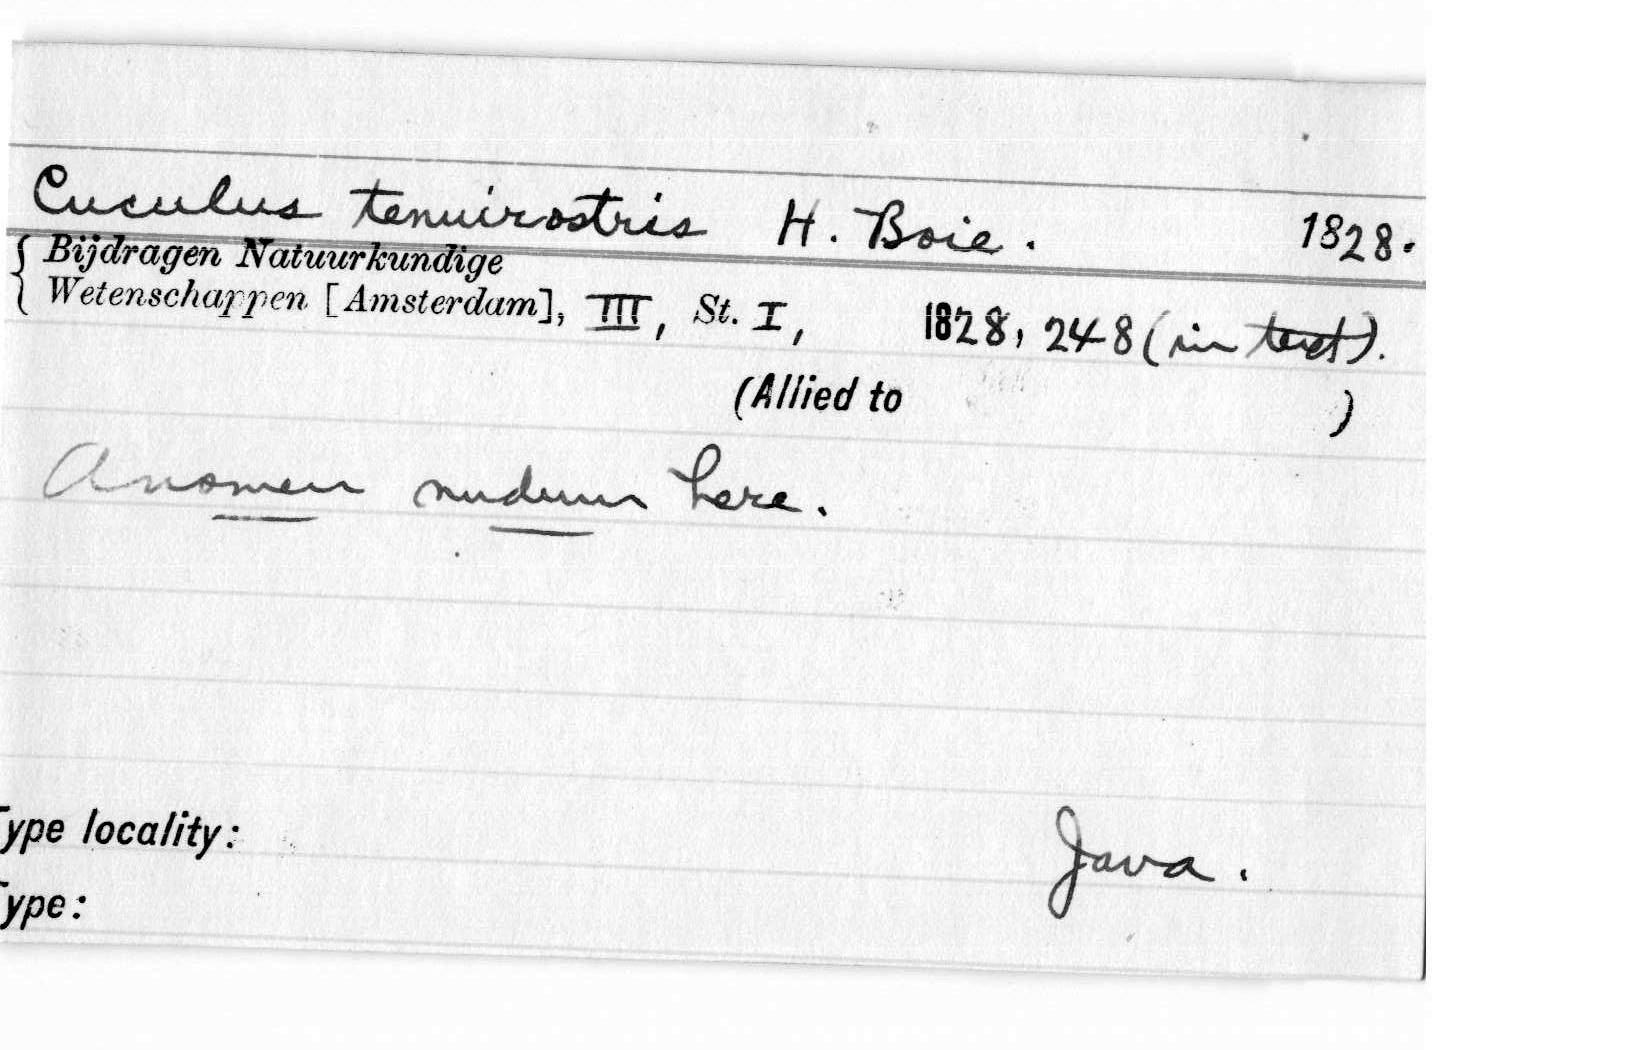 Cuculus tenuirostris H. Boie. 1828.
{ Bijdragen Natuurkundige
Wetenschappen [Amsterdam], III, St. I, 1828, 248 (in text).
(Allied to )
A nomen nudum here.
Type locality: Java.
Type: